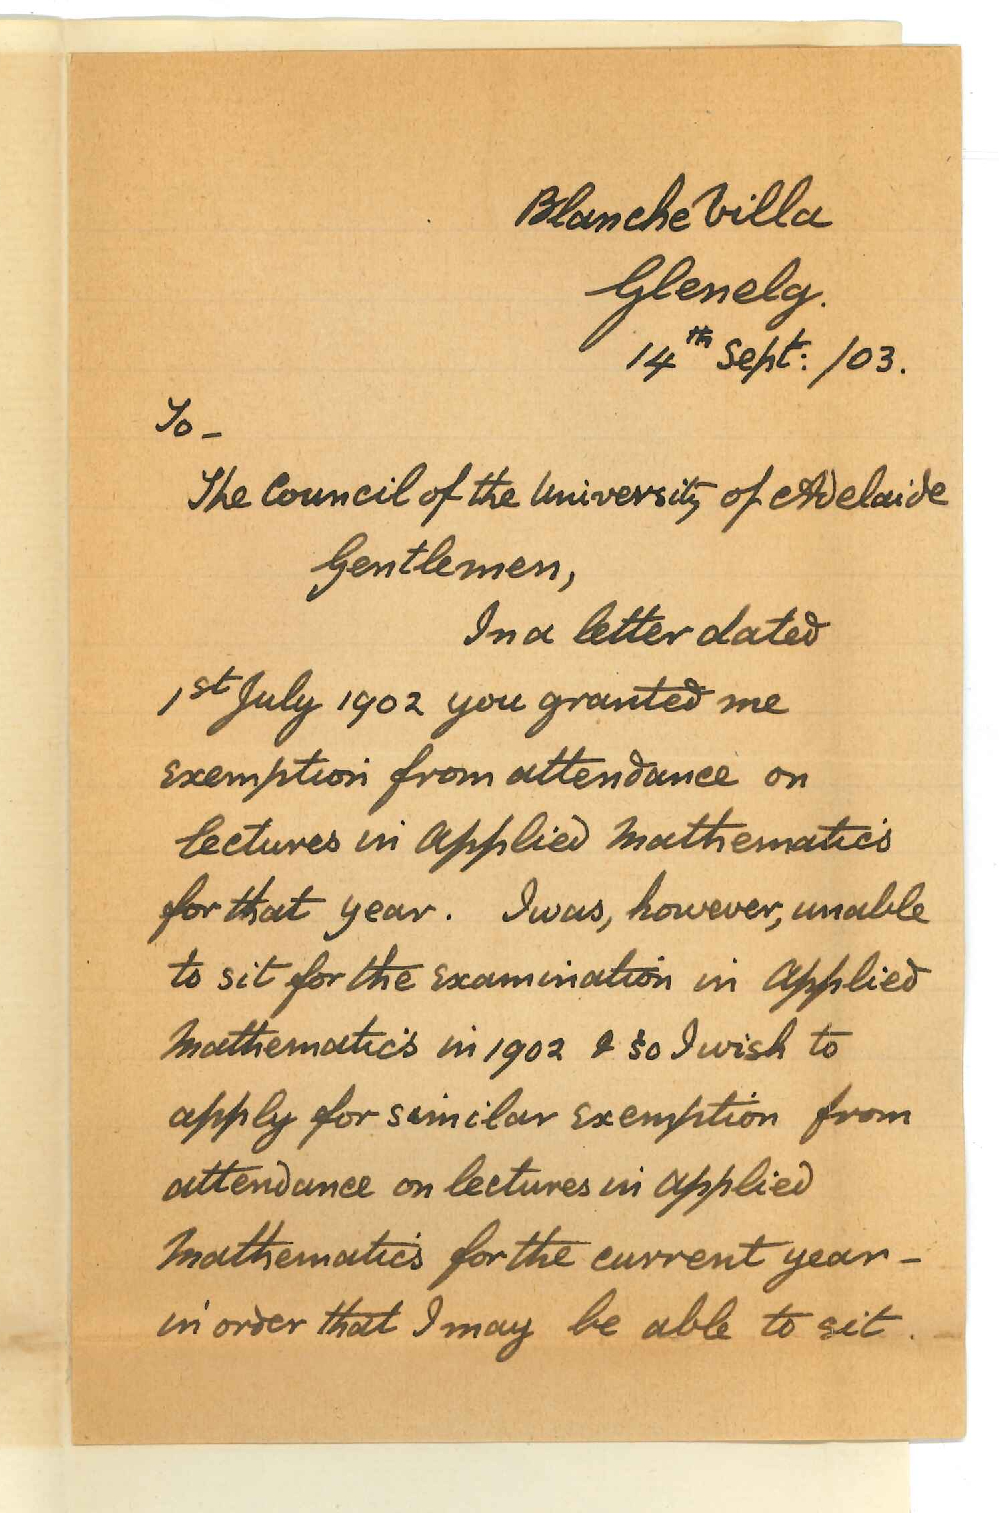 Blanche Villa
Glenelg.
14th Sept: /03.
To –
The Council of the University of Adelaide
Gentlemen,
In a letter dated
1st July 1902 you granted me
exemption from attendance on
lectures in Applied Mathematics
for that year. I was, however, unable
to sit for the examination in Applied
Mathematics in 1902 & so I wish to
apply for similar exemption from
attendance on lectures in Applied
Mathematics for the current year –
in order that I may be able to sit.